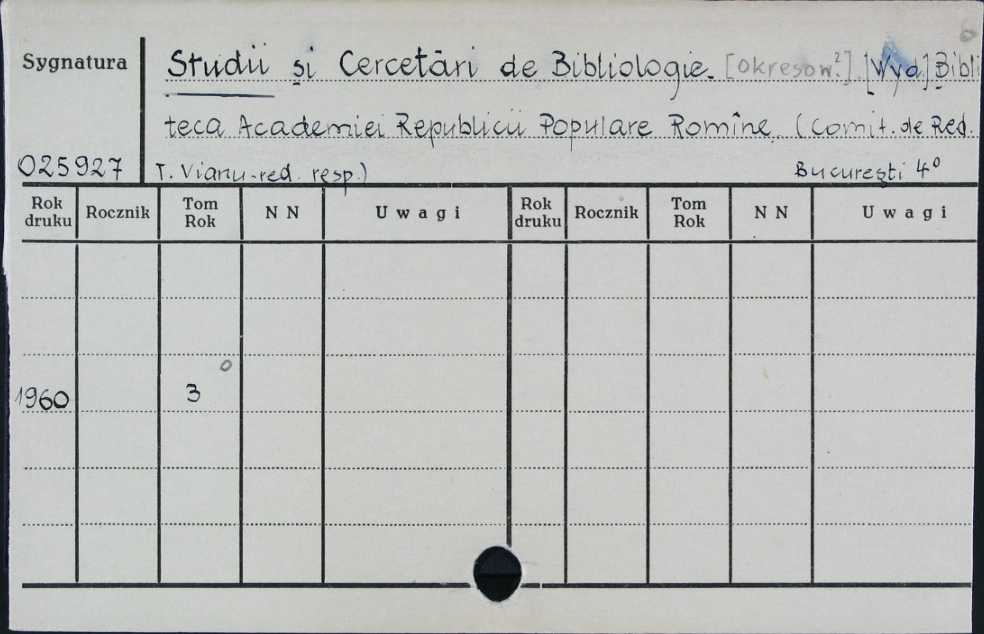 6
Sygnatura Studii și Cercetări de Bibliologie. [Okresow.?]. [Wyd] Bibli
teca Academiei Republicii Populare Romîne. (Comit. de Red.
025927 T. Vianu - red. resp.) București 4°
Rok druku Rocznik Tom Rok N N Uwagi Rok druku Rocznik Tom Rok N N Uwagi
1960 3